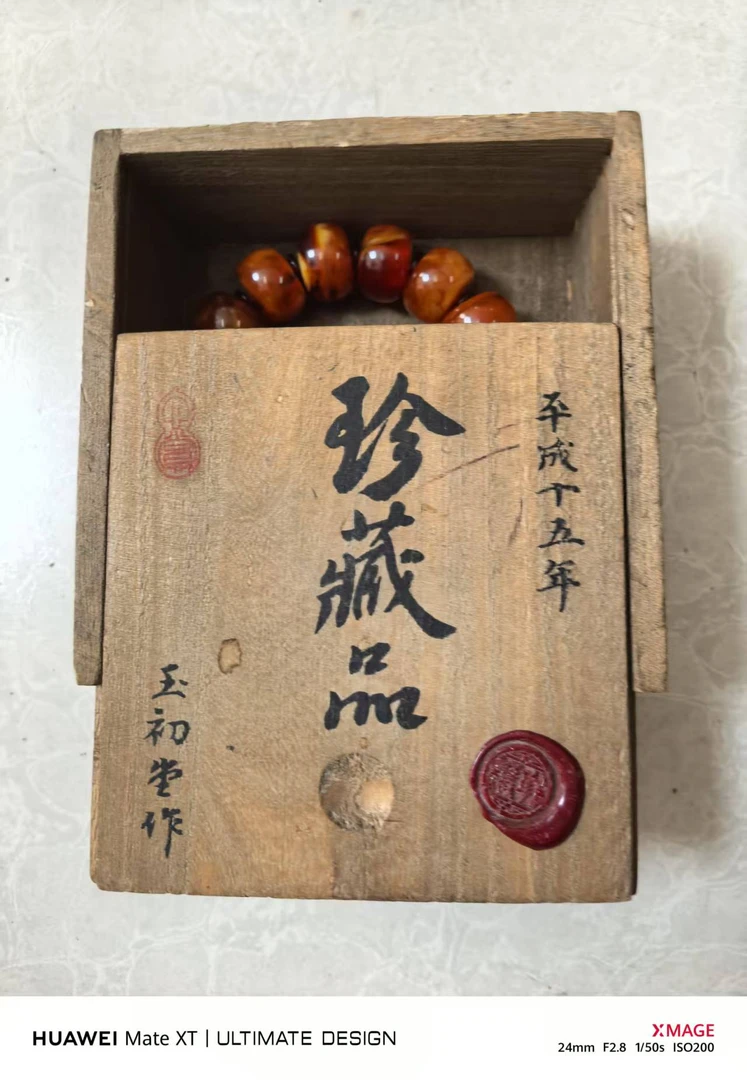 平成十五年
珍藏品
玉初堂作
HUAWEI Mate XT | ULTIMATE DESIGN
XMAGE
24mm F2.8 1/50s ISO200